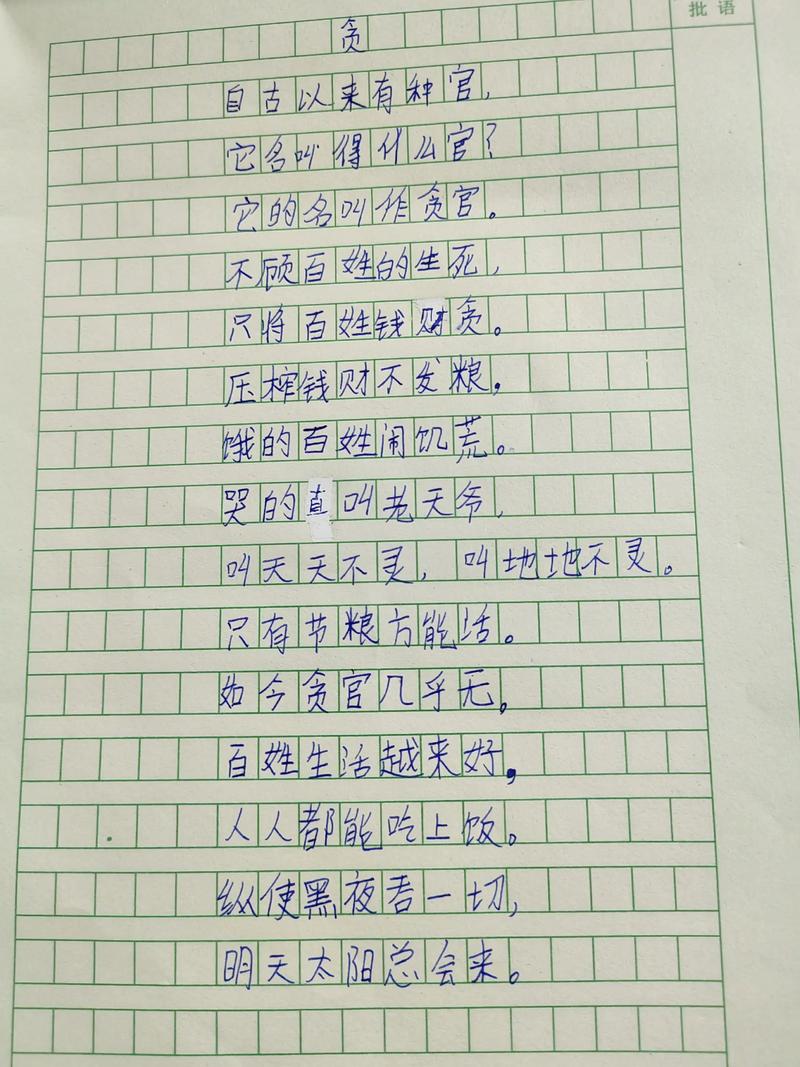 批语
贪
自古以来有种官,
它名叫得什么官?
它的名叫作贪官。
不顾百姓的生死,
只将百姓钱财贪。
压榨钱财不发粮,
饿的百姓闹饥荒。
哭的直叫老天爷,
叫天天不灵,叫地地不灵。
只有节粮方能活。
如今贪官几乎无,
百姓生活越来好,
人人都能吃上饭。
纵使黑夜吞一切,
明天太阳总会来。